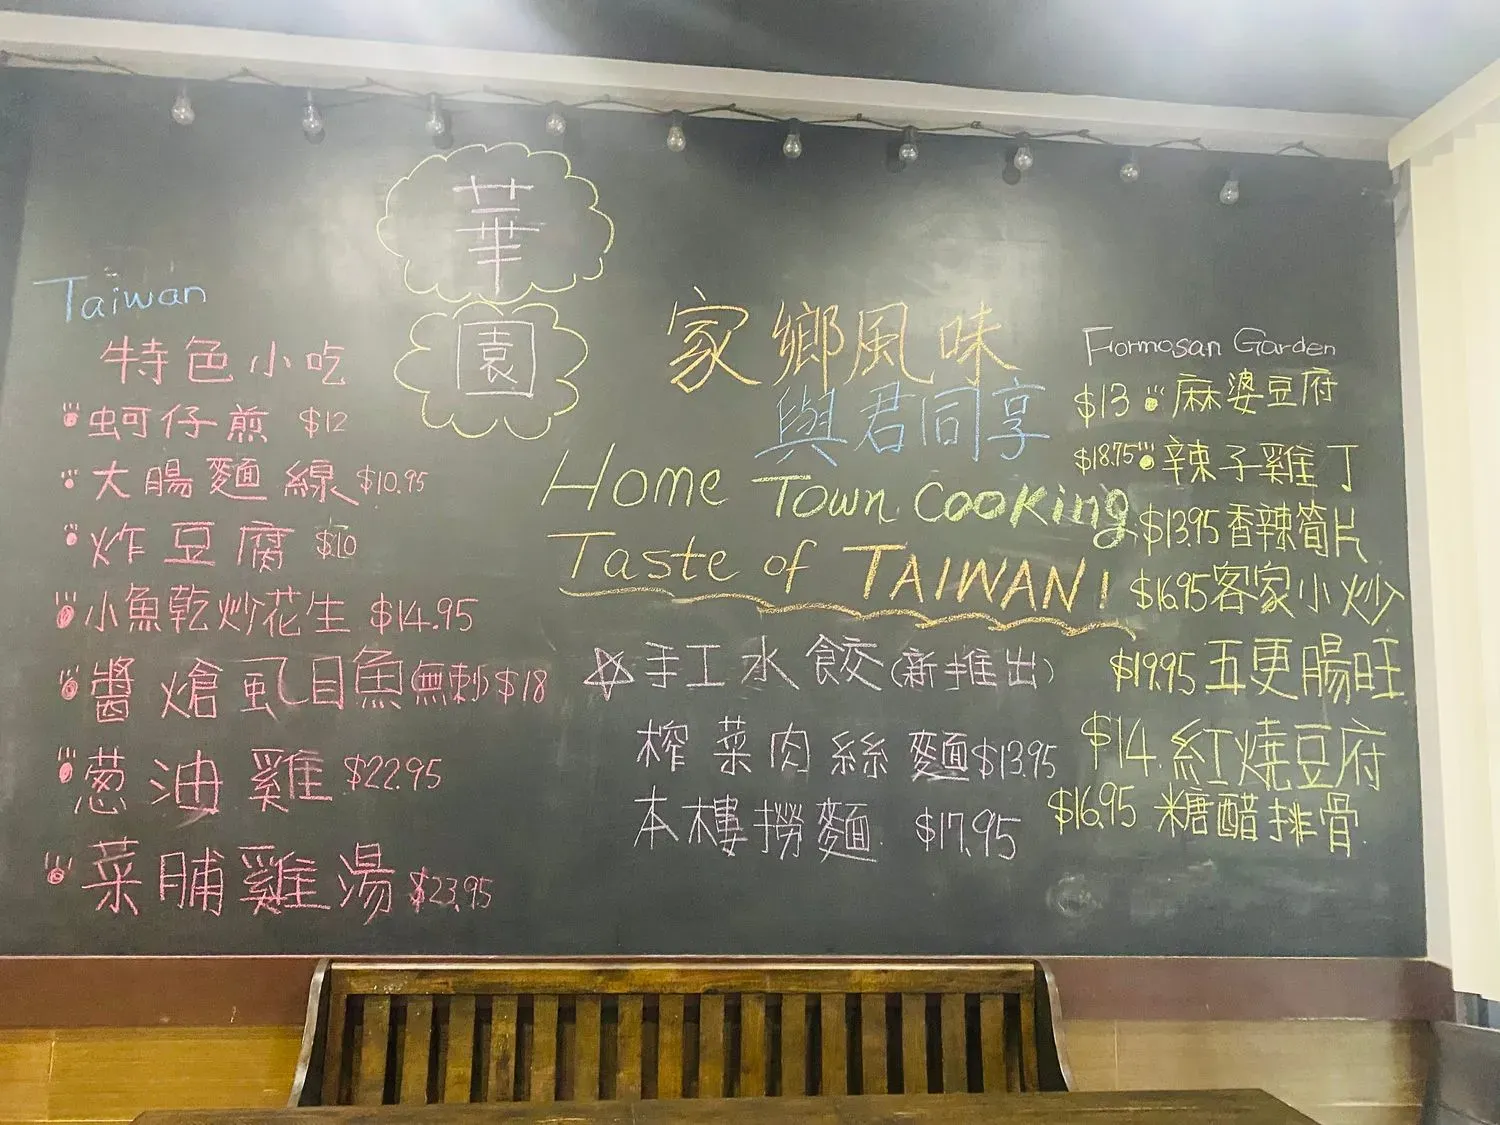 華
園
Taiwan
特色小吃
蚵仔煎 $12
大腸麵線 $10.95
炸豆腐 $10
小魚乾炒花生 $14.95
醬熗虱目魚(無刺) $18
葱油雞 $22.95
菜脯雞湯 $23.95
家鄉風味
與君同享
Home Town Cooking
Taste of TAIWAN!
手工水餃(新推出)
榨菜肉絲麵 $13.95
本樓撈麵 $17.95
Formosan Garden
$13 麻婆豆府
$18.75 辣子雞丁
$13.95 香辣筍片
$16.95 客家小炒
$19.95 五更腸旺
$14. 紅燒豆府
$16.95 糖醋排骨